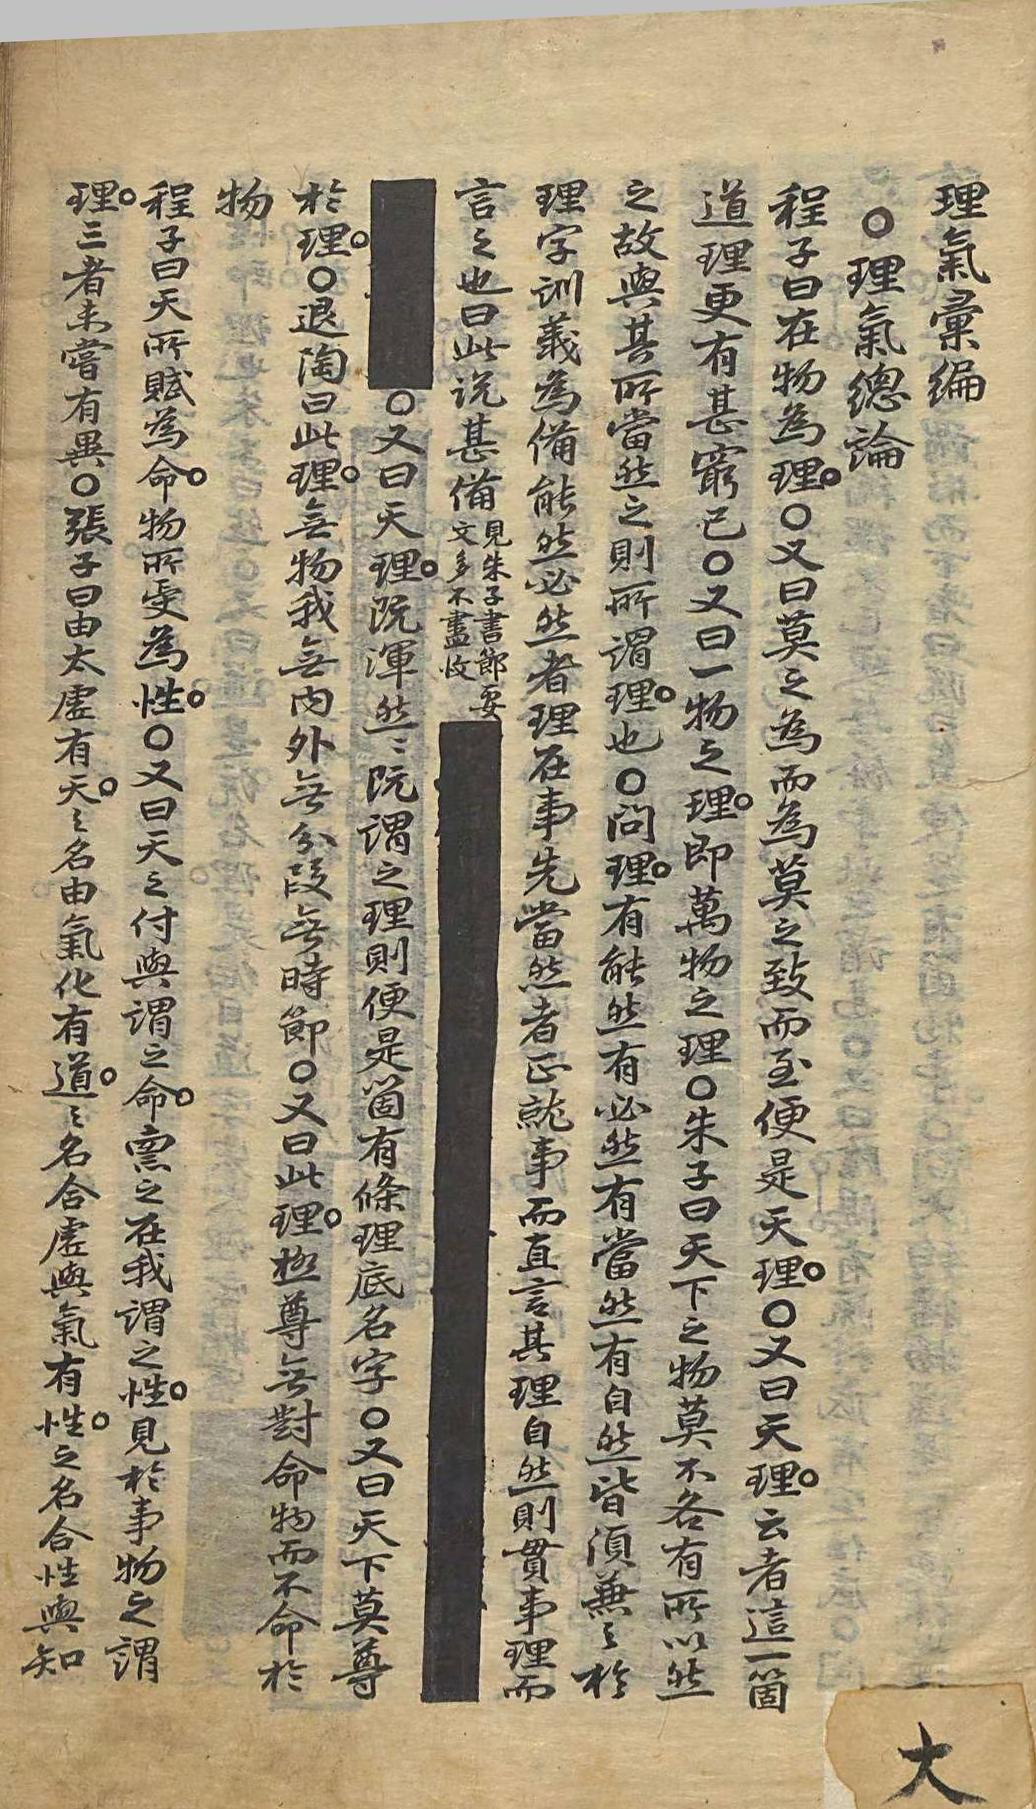 理氣彙編
○理氣總論
程子曰在物為理○又曰莫之為而為莫之致而至便是天理○又曰天理云者這一箇
道理更有甚窮已○又曰一物之理即萬物之理○朱子曰天下之物莫不各有所以然
之故與其所當然之則所謂理也○問理有能然有必然有當然有自然皆須兼之於
理字訓義為備能然必然者理在事先當然者正就事而直言其理自然則貫事理而
言之也曰此説甚備見朱子書節要文多不盡收
○又曰天理既渾然〻既謂之理則便是箇有條理底名字○又曰天下莫尊
於理○退陶曰此理無物我無内外無分段無時節○又曰此理極尊無對命物而不命於
物
程子曰天所賦為命物所受為性○又曰天之付與謂之命禀之在我謂之性見於事物之謂
理三者未嘗有異○張子曰由太虛有天〻名由氣化有道〻名合虛與氣有性之名合性與知
大